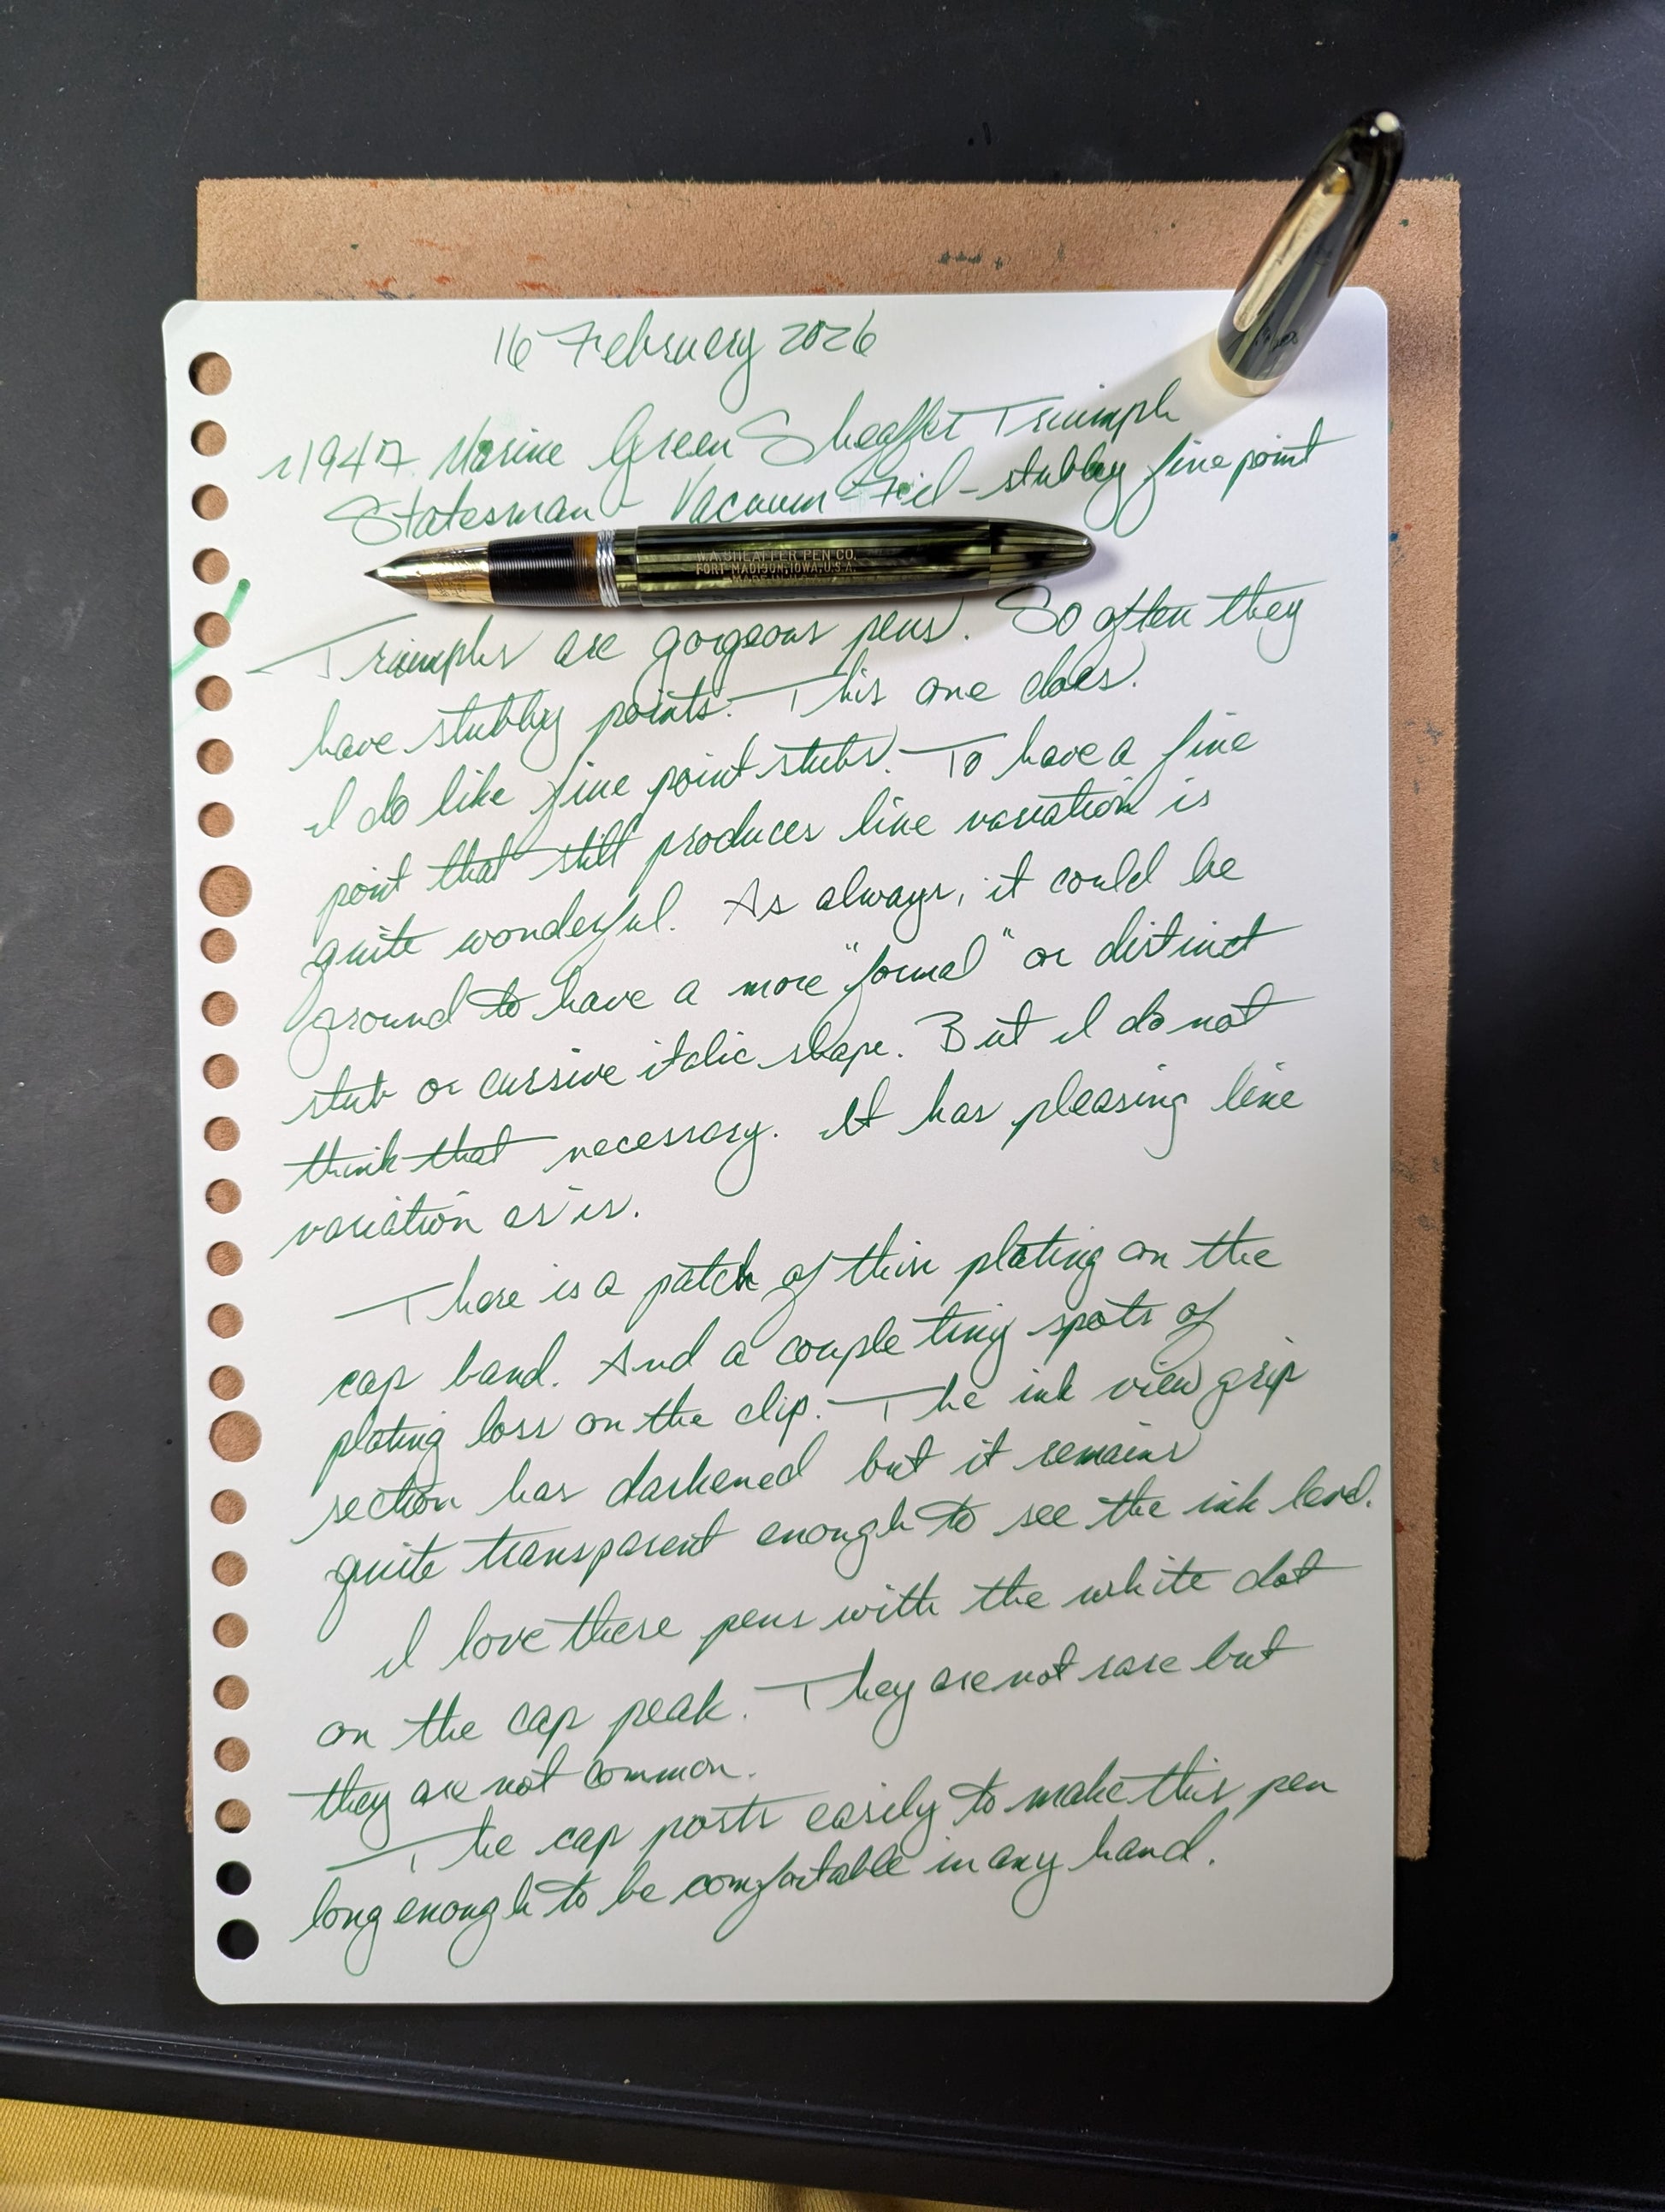 16 February 2026
~1947 Marine Green Sheaffer Triumph
Statesman - Vacuum-Fil - stubby fine point
W.A. SHEAFFER PEN CO.
FORT MADISON, IOWA, U.S.A.
MADE IN U.S.A.
Triumphs are gorgeous pens. So often they
have stubby points. This one does.
I do like fine point stubs. To have a fine
point that still produces line variation is
quite wonderful. As always, it could be
ground to have a more "formal" or distinct
stub or cursive italic shape. But I do not
think that necessary. It has pleasing line
variation as is.
There is a patch of thin plating on the
cap band. And a couple tiny spots of
plating loss on the clip. The ink view grip
section has darkened but it remains
quite transparent enough to see the ink level.
I love these pens with the white dot
on the cap peak. They are not rare but
they are not common.
The cap posts easily to make this pen
long enough to be comfortable in any hand.